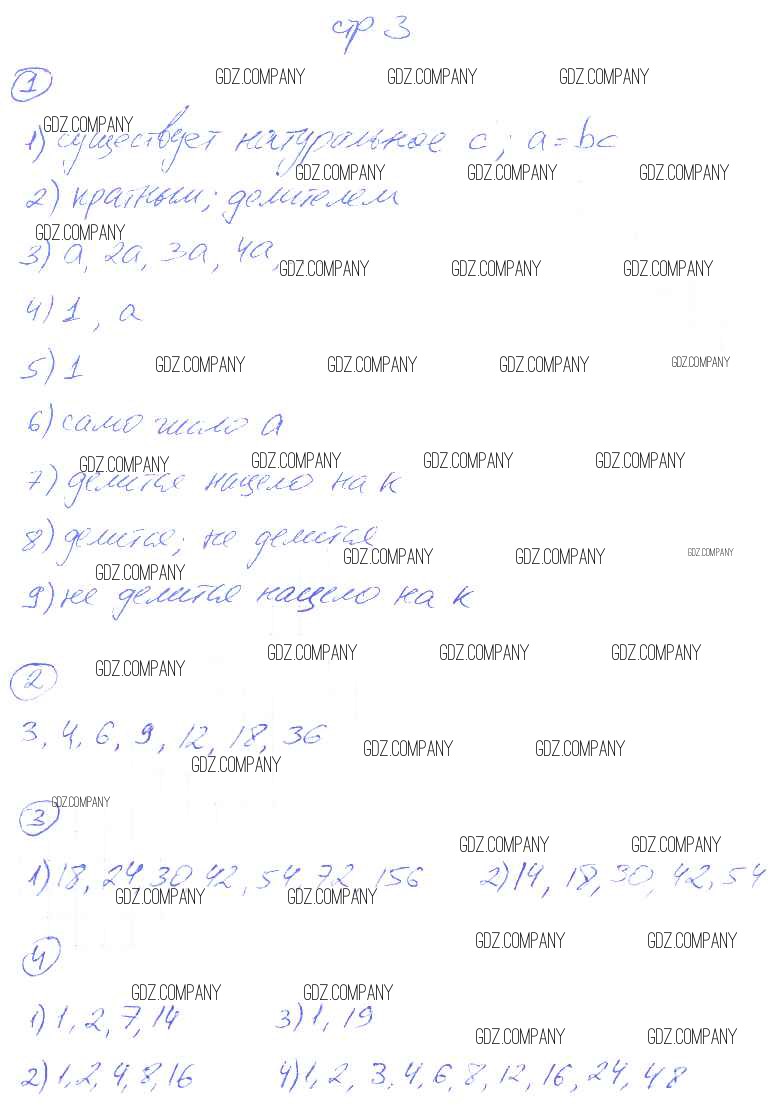 стр 3
1
GDZ.COMPANY GDZ.COMPANY GDZ.COMPANY
GDZ.COMPANY
1) существует натуральное c; a=bc
GDZ.COMPANY GDZ.COMPANY GDZ.COMPANY
2) кратным; делителем
GDZ.COMPANY
3) a, 2a, 3a, 4a,
GDZ.COMPANY GDZ.COMPANY GDZ.COMPANY
4) 1, a
5) 1 GDZ.COMPANY GDZ.COMPANY GDZ.COMPANY GDZ.COMPANY
6) само число a
GDZ.COMPANY GDZ.COMPANY GDZ.COMPANY GDZ.COMPANY
7) делится нацело на к
8) делится; не делится
GDZ.COMPANY GDZ.COMPANY GDZ.COMPANY
GDZ.COMPANY
9) не делится нацело на к
GDZ.COMPANY GDZ.COMPANY GDZ.COMPANY GDZ.COMPANY
2
3, 4, 6, 9, 12, 18, 36
GDZ.COMPANY GDZ.COMPANY
GDZ.COMPANY
GDZ.COMPANY
3
GDZ.COMPANY GDZ.COMPANY
1) 18, 24, 30, 42, 54, 72, 156 2) 14, 18, 30, 42, 54
GDZ.COMPANY GDZ.COMPANY
GDZ.COMPANY GDZ.COMPANY
4
GDZ.COMPANY GDZ.COMPANY
1) 1, 2, 7, 14 3) 1, 19
GDZ.COMPANY GDZ.COMPANY
2) 1, 2, 4, 8, 16 4) 1, 2, 3, 4, 6, 8, 12, 16, 24, 48